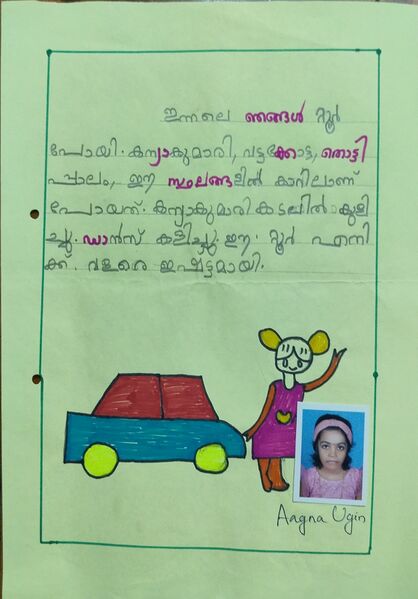 ഇന്നലെ ഞങ്ങൾ റ്റൂർ
പോയി. കന്യാകുമാരി, വട്ടക്കോട്ട, തൊട്ടി
പ്പാലം, ഈ സ്ഥലങ്ങളിൽ കാറിലാണ്
പോയത്. കന്യാകുമാരി കടലിൽ കുളി
ച്ചു. ഡാൻസ് കളിച്ചു. ഈ റ്റൂർ എനി
ക്ക് വളരെ ഇഷ്ടമായി.
Aagna Ugin